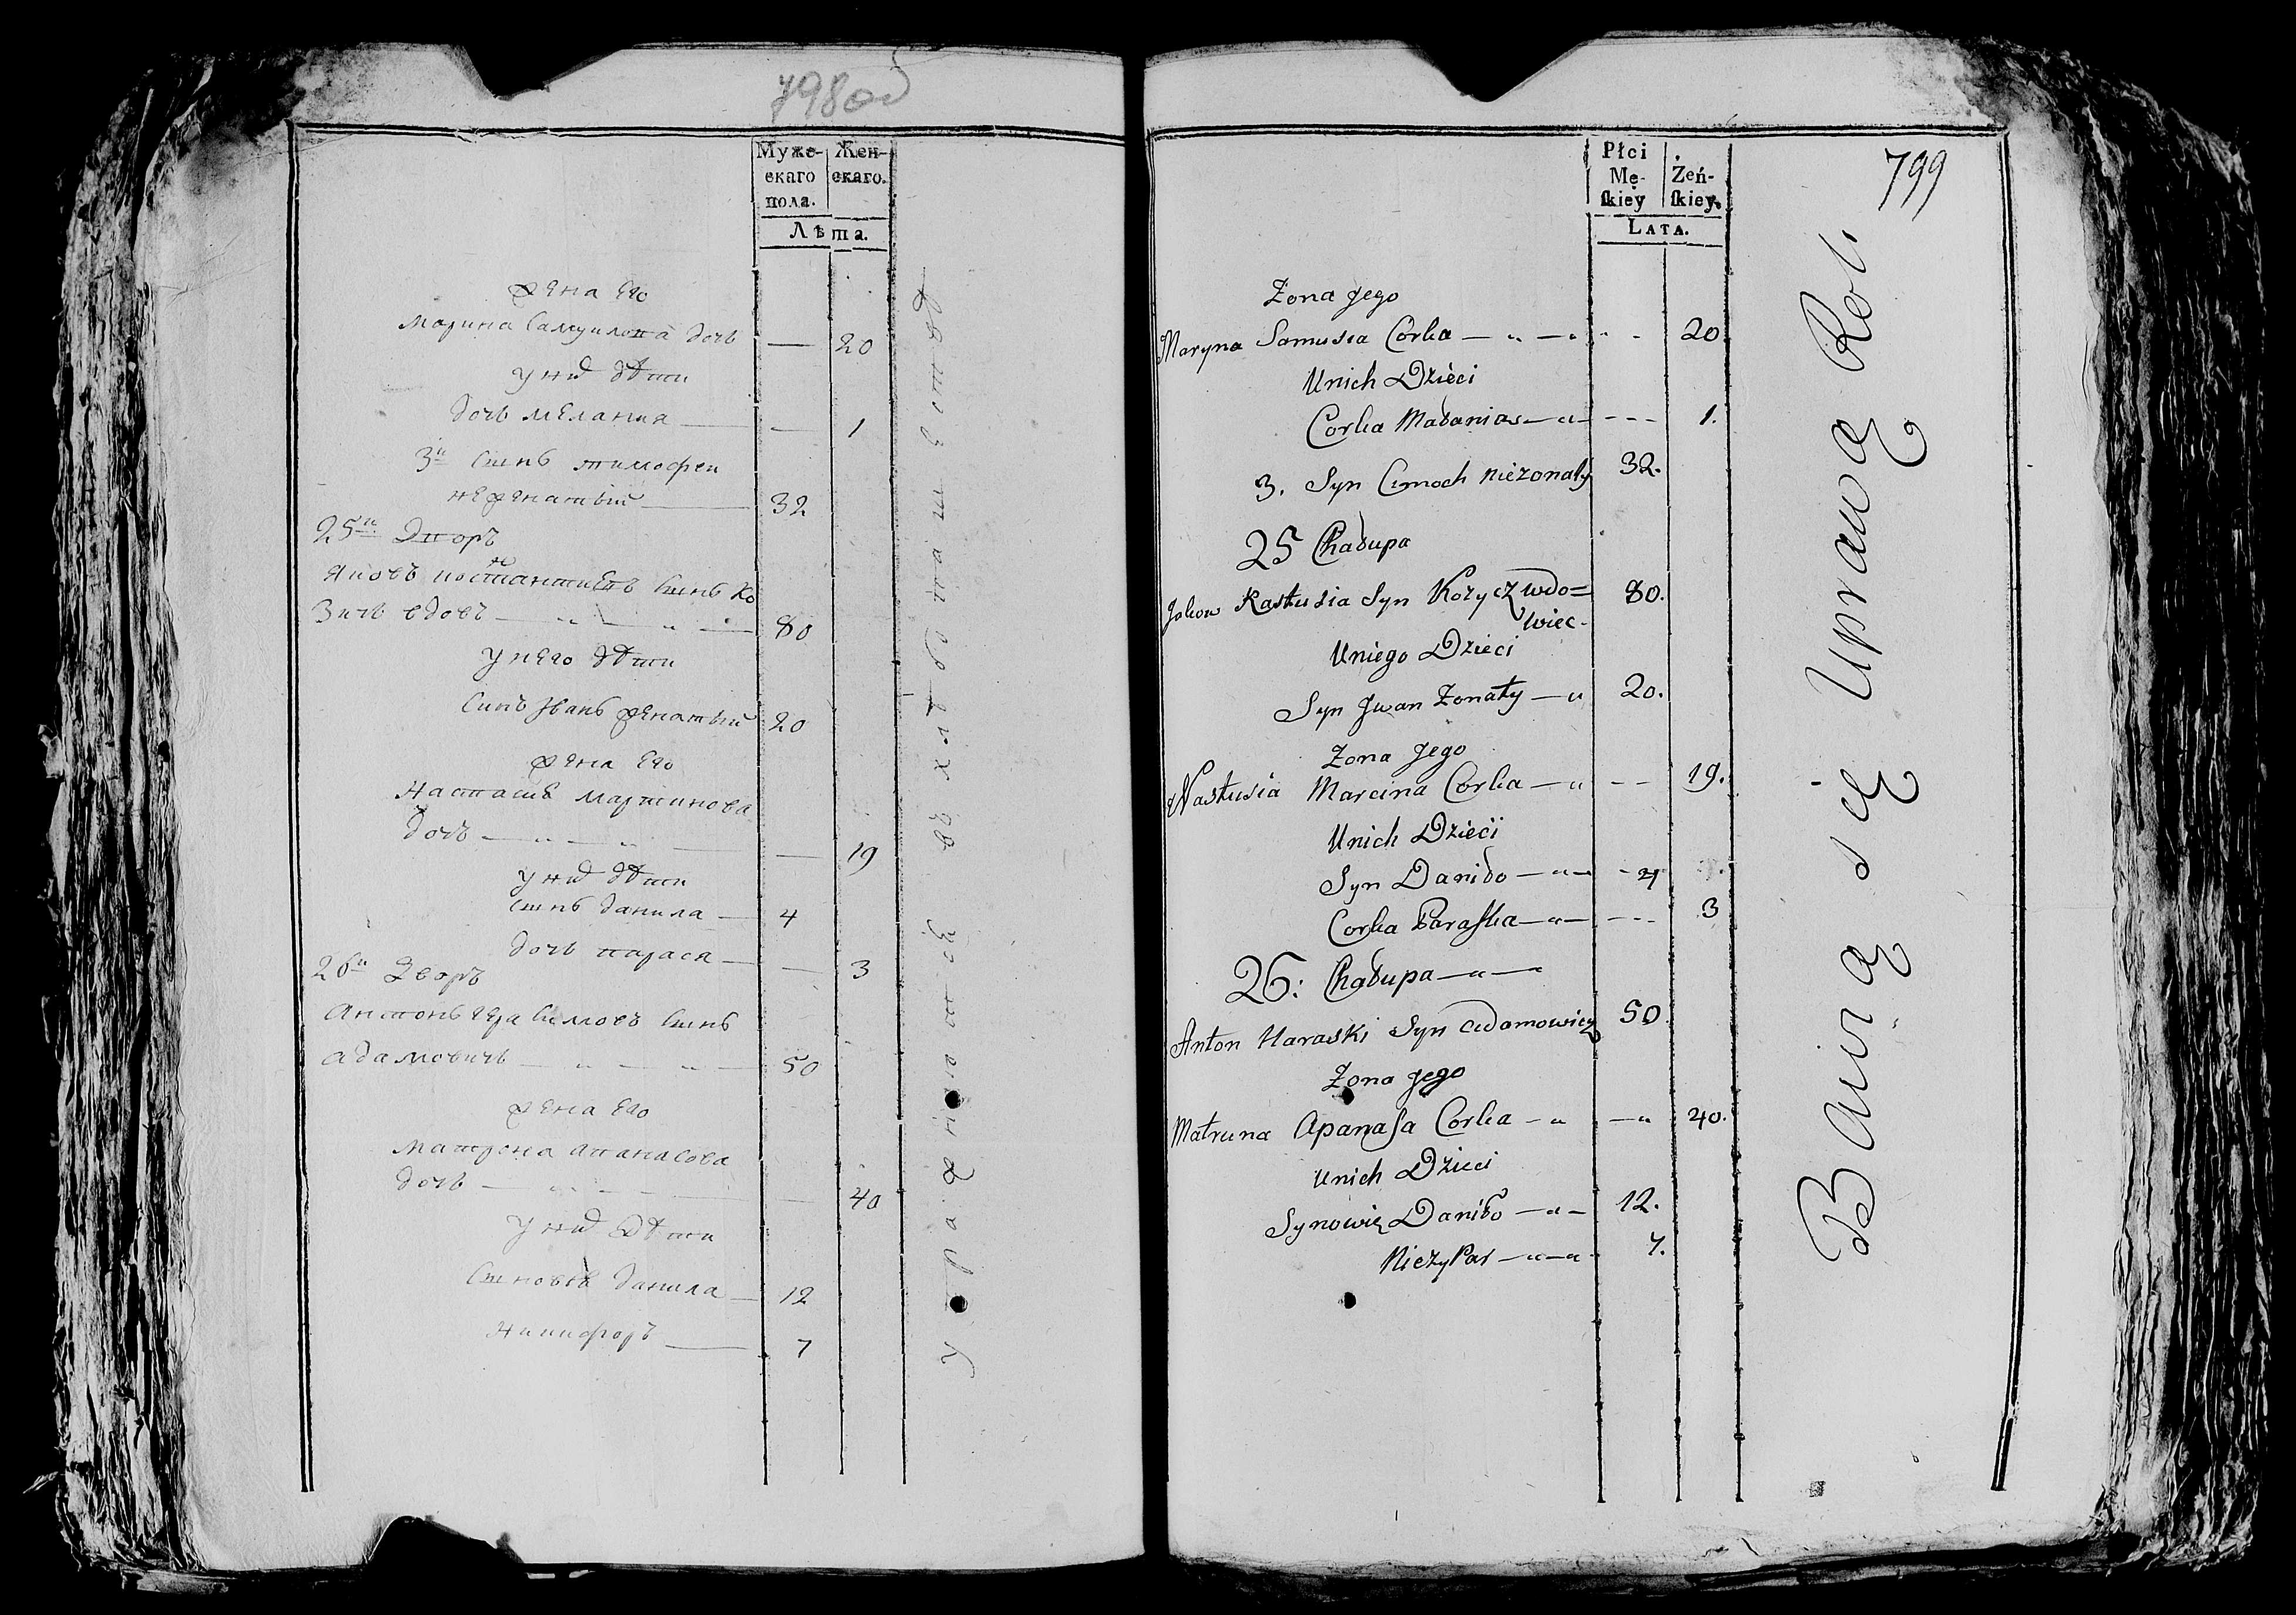 798об
Муже-
скаго
пола.
Жен-
скаго.
Лѣта.
жена Его
Марина Самуилова дочь — 20
у них дѣти
дочь мелания — — 1
3й Сынъ тимофеи
неженатый — 32
25й Дворъ
Яковъ костантиевъ Сынъ Ко
зичь вдовъ — 80
у него дѣти
Синъ Иванъ женатый 20
жена Его
Настасия мартинова
дочь — — 19
у них дѣти
Сынъ данила — 4
дочь парася — — 3
26й Дворъ
Антонъ Герасимовъ Сынъ
адамовичь — 50
жена Его
матрона апанасова
дочь — — 40
у них Дѣти
Сыновья данила — 12
Никифоръ — 7
799
Płci
Mę-
skiey
Żeń-
skiey.
Lata.
Żona Jego
Maryna Samusia Corka — 20.
Unich Dzieci
Corka Małania — 1.
3. Syn Cimoch nieżonaty 32.
25 Chałupa
Jakow Kastusia Syn Kozycz wdo=
wiec. 80.
Uniego Dzieci
Syn Jwan Żonaty — 20.
Żona Jego
Nastusia Marcina Corka — 19.
Unich Dzieci
Syn Daniło — 4
Corka Paraska — 3
26: Chałupa —
Anton Haraski Syn Adamowicz 50
Żona Jego
Matruna Apanasa Corka — 40.
Unich Dzieci
Synowie Daniło — 12.
Niczypar — 7.
Bawią się Uprawą Roli